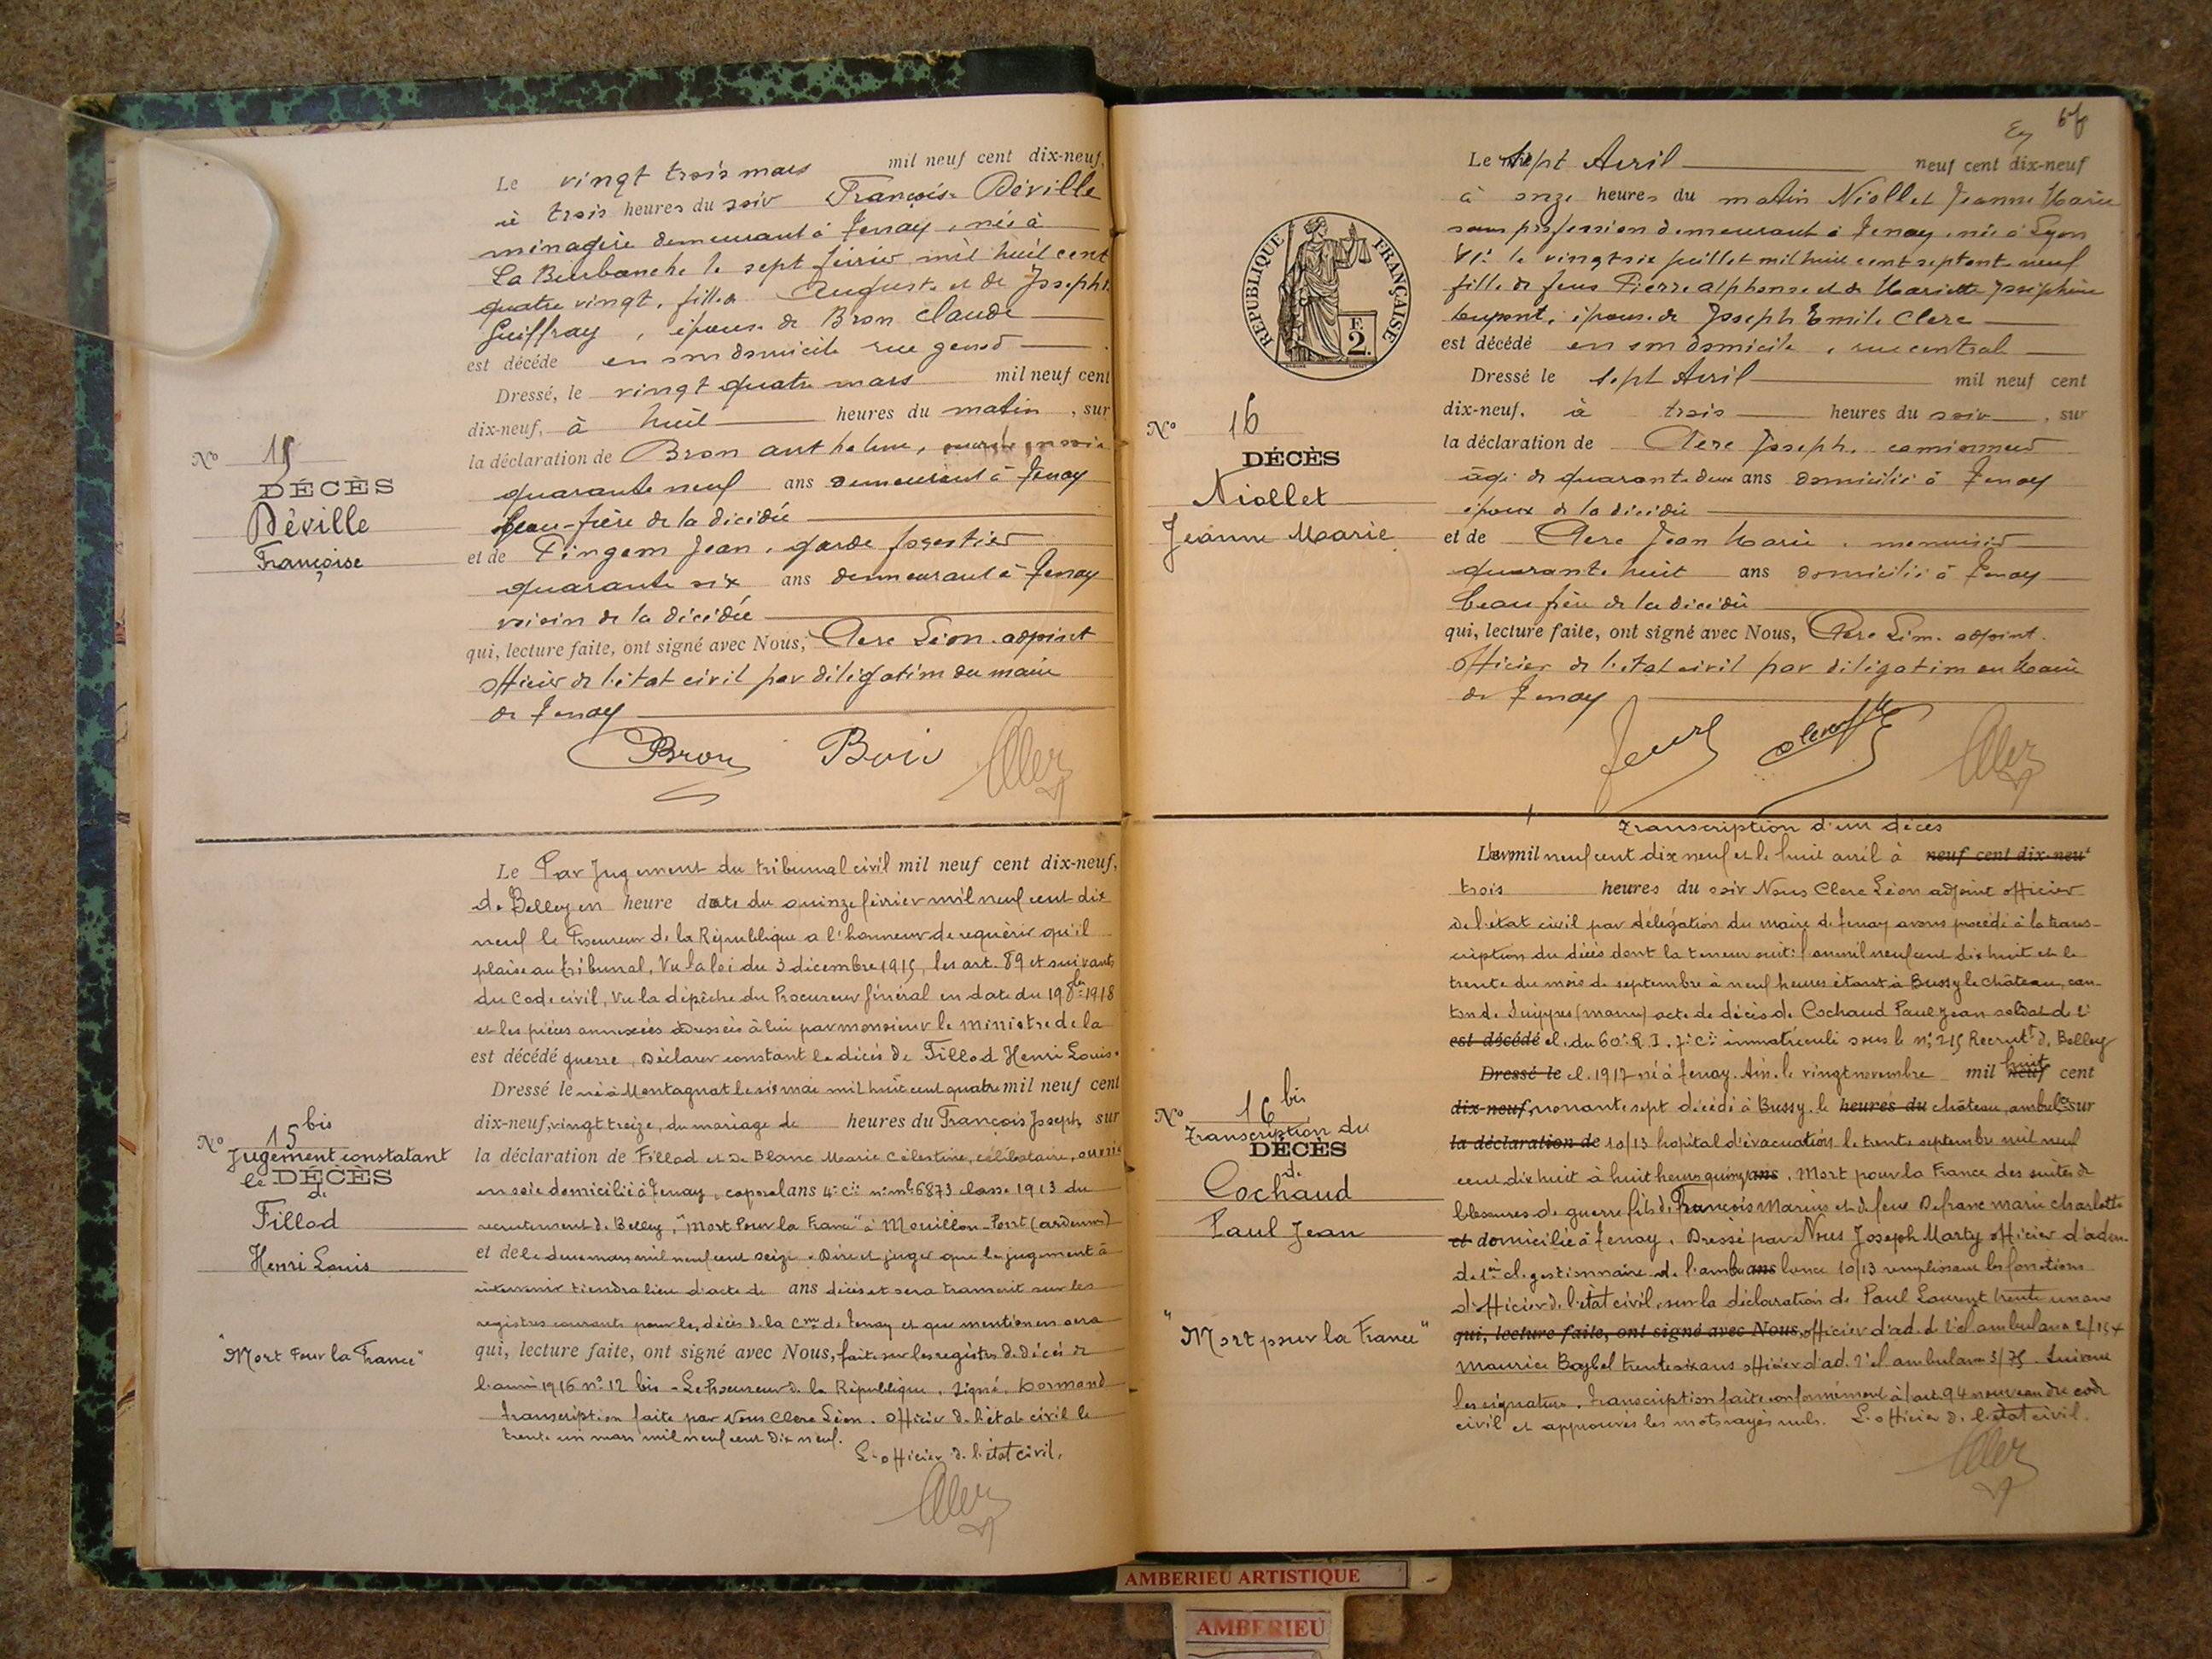 Le vingt trois mars mil neuf cent dix-neuf,
à trois heures du soir Françoise Déville
ménagère demeurant à Tenay, née à
La Burbanche le sept février mil huit cent
quatre vingt, fille Auguste et de Josephte
Guiffray, épouse de Bron Claude
est décédé en son domicile rue
Dressé, le vingt quatre mars mil neuf cent
dix-neuf, à huit heures du matin, sur
la déclaration de Bron Anthelme, ouvrier en soie
quarante neuf ans demeurant à Tenay
beau-frère de la décédée
et de Pingem Jean, garde forestier
quarante six ans demeurant à Tenay
voisin de la décédée
qui, lecture faite, ont signé avec Nous, Clerc Léon adjoint
officier de l'état civil par délégation du maire
de Tenay
Bron
No 15
DÉCÈS
Déville
Françoise
Le Par Jugement du tribunal civil mil neuf cent dix-neuf,
de Belley en heure date du quinze février mil neuf cent dix
neuf le Procureur de la République a l'honneur de requérir qu'il
plaise au tribunal, Vu la loi du 3 décembre 1915, les art. 89 et suivants
du Code civil, Vu la dépêche du Procureur Général en date du 19 8bre 1918
et les pièces annexées adressées à lui par monsieur le ministre de la
est décédé guerre, Déclarer constant le décès de Fillod Henri Louis
Dressé le né à Montagnat le six mai mil huit cent quatre mil neuf cent
dix-neuf, vingt treize, du mariage de heures du François Joseph, sur
la déclaration de Fillod et de Blanc Marie Célestine, célibataire, ouvrier
en soie domicilié à Tenay, caporal ans 4e Cie n° ml 6873 classe 1913 du
recrutement de Belley, "Mort Pour la France" à Mouillon-Pont (ardennes)
et de le deux mars mil neuf cent seize. Dire et juger que le jugement à
intervenir tiendra lieu d'acte de ans décès et sera transcrit sur les
registres courants pour les décès de la Cne de Tenay et que mention en sera
qui, lecture faite, ont signé avec Nous, faite sur les registres de décès de
l'année 1916 n° 12 bis - Le Procureur de la République, Signé. Dormand
transcription faite par Nous Clerc Léon. Officier de l'état civil le
trente un mars mil neuf cent dix neuf.
L'officier de l'état civil,
No 15 bis
Jugement constatant
le DÉCÈS
de
Fillod
Henri Louis
"Mort Pour la France"
Le sept Avril neuf cent dix-neuf
à onze heures du matin Niollet Jeanne Marie
sans profession demeurant à Tenay, née à Lyon
VIe le vingt six juillet mil huit cent septante neuf
fille de feus Pierre Alphonse et de Mariette Joséphine
Dupont, épouse de Joseph Emile Clerc
est décédé en son domicile, rue central
Dressé le sept Avril mil neuf cent
dix-neuf, à trois heures du soir, sur
la déclaration de Clerc Joseph, camionneur
âgé de quarante deux ans domicilié à Tenay
époux de la décédée
et de Clerc Jean Marie, menuisier
quarante huit ans domicilié à Tenay
beau frère de la décédée
qui, lecture faite, ont signé avec Nous, Clerc Léon. adjoint
officier de l'état civil par délégation du Maire
de Tenay
RÉPUBLIQUE FRANÇAISE
2
No 16
DÉCÈS
Niollet
Jeanne Marie
Transcription d'un décès
L'an mil neuf cent dix neuf et le huit avril à neuf cent dix-neuf
trois heures du soir Nous Clerc Léon adjoint officier
de l'état civil par délégation du maire de Tenay avons procédé à la trans-
cription du décès dont la teneur suit: l'an mil neuf cent dix huit et le
trente du mois de septembre à neuf heures étant à Bussy le Château, can-
ton de Suippes (marne) acte de décès de Cochaud Paul Jean soldat de 2e
est décédé cl. du 60e R. I. 7e Cie immatriculé sous le n° 215 Recrutt de Belley
Dressé le cl. 1917 né à Tenay. Ain. le vingt novembre mil neuf huit cent
dix-neuf, nonante sept décédé à Bussy le heures du château, ambulce sur
la déclaration de 10/13 hopital d'évacuation le trente septembre mil neuf
cent dix huit à huit heures quinze ans. Mort pour la France des suites de
blessures de guerre fils de François Marius et de feue Defranc marie charlotte
et domicilié à Tenay. Dressé par Nous Joseph Marty officier d'adm.
de 1ere cl. gestionnaire de l'ambu ans lance 10/13 remplissant les fonctions
d'officier de l'état civil, sur la déclaration de Paul Laurent trente un ans
qui, lecture faite, ont signé avec Nous, officier d'ad. de 2e cl ambulance 2/15
maurice Baylel trente six ans officier d'ad. 2e cl ambulance 3/75. Suivent
les signatures. Transcription faite conformément à l'art. 94 nouveau du code
civil et approuvés les mots rayés nuls. L'officier de l'état civil.
No 16 bis
Transcription du
DÉCÈS
de
Cochaud
Paul Jean
"Mort pour la France"
AMBERIEU ARTISTIQUE
AMBERIEU